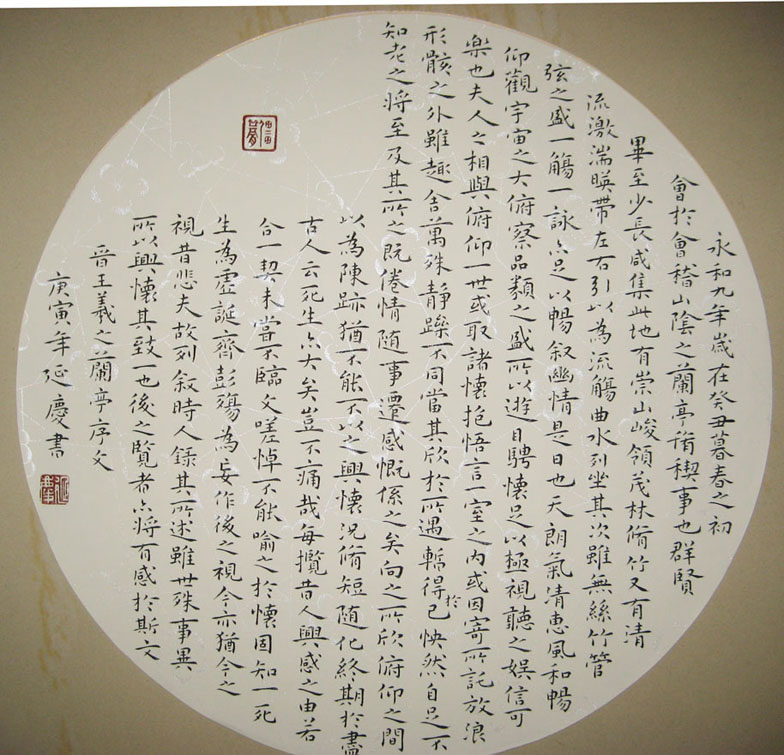 永和九年歲在癸丑暮春之初
會於會稽山陰之蘭亭脩稧事也群賢
畢至少長咸集此地有崇山峻領茂林脩竹又有清
流激湍暎帶左右引以為流觴曲水列坐其次雖無絲竹管
弦之盛一觴一詠亦足以暢叙幽情是日也天朗氣清惠風和暢
仰觀宇宙之大俯察品類之盛所以遊目騁懷足以極視聽之娛信可
樂也夫人之相與俯仰一世或取諸懷抱悟言一室之內或因寄所託放浪
形骸之外雖趣舍萬殊靜躁不同當其欣於所遇暫得於己怏然自足不
知老之將至及其所之既倦情隨事遷感慨係之矣向之所欣俯仰之間
以為陳跡猶不能不以之興懷況脩短隨化終期於盡
古人云死生亦大矣豈不痛哉每攬昔人興感之由若
合一契未嘗不臨文嗟悼不能喻之於懷固知一死
生為虛誕齊彭殤為妄作後之視今亦猶今之
視昔悲夫故列叙時人錄其所述雖世殊事異
所以興懷其致一也後之覽者亦將有感於斯文
晉王羲之蘭亭序文
庚寅年延慶書